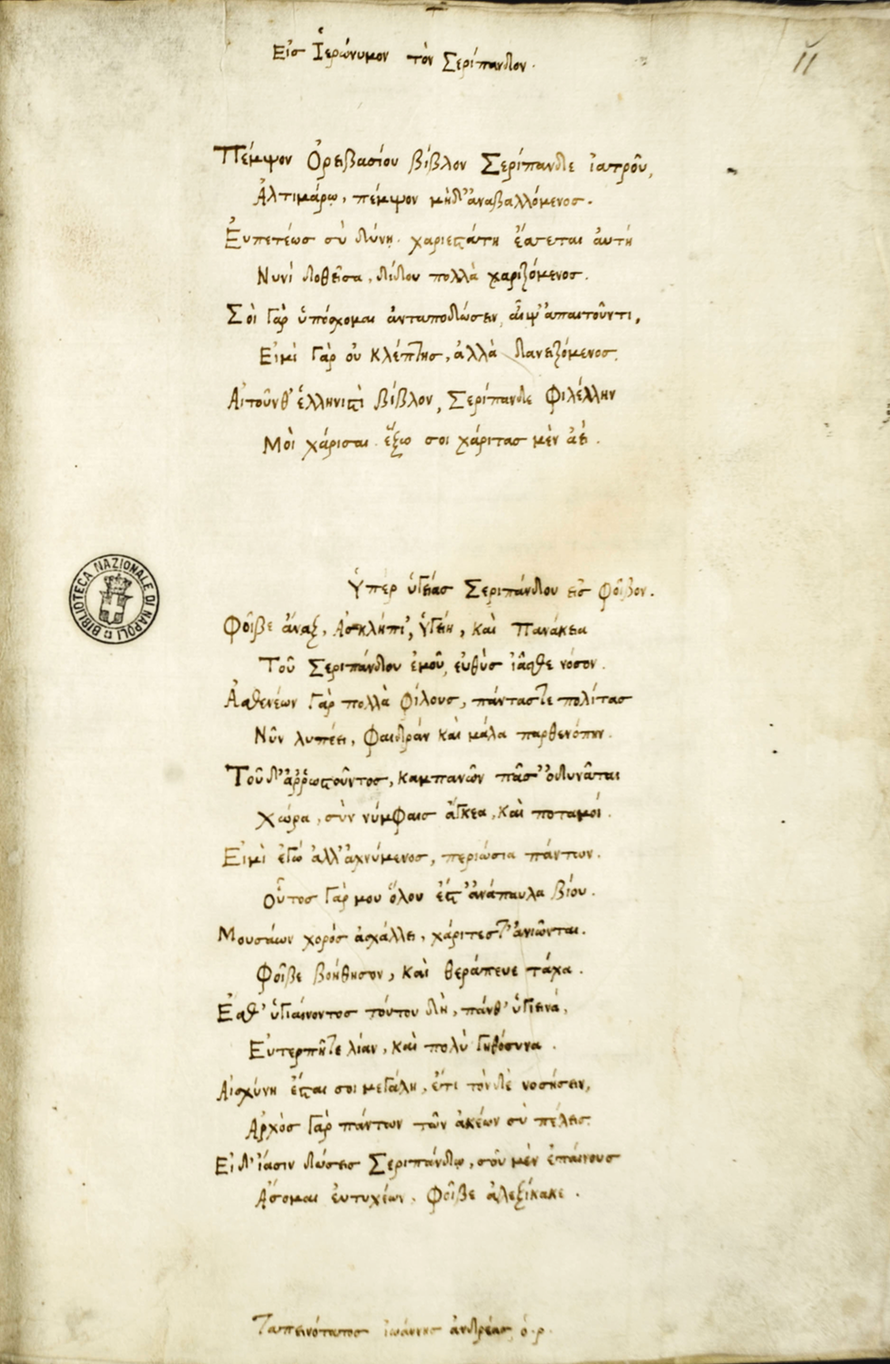 Εἰς Ἱερώνυμον τὸν Σερίπανδον.
11
Πέμψον Ὀρειβασίου βίβλον Σερίπανδε ἰατροῦ,
Ἀλτιμάρῳ, πέμψον μὴδ' ἀναβαλλόμενος.
Εὐπετέως σὺ δύνῃ. χαριεστάτη ἔσσεται ἀυτὴ
Νυνὶ δοθεῖσα, δίδου πολλὰ χαριζόμενος.
Σὸι Γὰρ ὑπόσχομαι ἀνταποδώσειν, αἶψ' ἀπαιτοῦντι,
Εἰμὶ Γὰρ ὀυ κλέπτης, ἀλλὰ δανειζόμενος.
Αἰτοῦνθ' ἑλληνιστὶ βίβλον, Σερίπανδε Φιλέλλην
Μοὶ χάρισαι. ἕξω σοι χάριτας μὲν ἀεὶ.
Ὑπερ ὑγείας Σεριπάνδου εἰς Φοῖβον.
Φοῖβε ἄναξ, Ἀσκλήπι', Ὑγείη, καὶ Πανάκεια
Τοῦ Σεριπάνδου ἐμοῦ, ευθὺς ἰᾶσθε νόσον.
Ἀσθενέων Γὰρ πολλὰ φίλους, πάντας τε πολίτας
Νῦν λυπέει, φαιδρὰν καὶ μάλα παρθενόπην.
Τοῦ δ' ἀῤῥωστοῦντος, καμπανῶν πᾶσ' ὀδυνᾶται
Χώρα, σὺν νύμφαις ἄγκεα, καὶ ποταμοί.
Εἰμὶ ἐγὼ ἀλλ' ἀχνύμενος, περιώσια πάντων.
Οὗτος Γὰρ μου ὅλου ἔστ' ἀνάπαυλα βίου.
Μουσάων χορὸς ἀσχάλλει, χάριτες τ' ἀνιῶνται.
Φοῖβε βοήθησον, καὶ θεράπευε τάχα.
Εσθ' ὑγιαίνοντος τόυτου δὴ, πάνθ' ὑγιεινὰ,
Ευτερπῆ τε λίαν, καὶ πολὺ γηθόσυνα.
Αἰσχύνη ἔσται σοι μεγάλη, ἔτι τόνδε νοσήσειν,
Ἀρχὸς Γὰρ πάντων τῶν ἀκέων σὺ πέλεις.
Εἰ δ' ἴασιν δώσεις Σεριπάνδῳ, σὸυ μὲν ἐπάινους
Ἄσομαι ἐυτυχέων, Φοῖβε ἀλεξίκακε.
BIBLIOTECA NAZIONALE DI NAPOLI
Ταπεινότατος ἰωάννης ἀνδρέας ὁ. ρ.